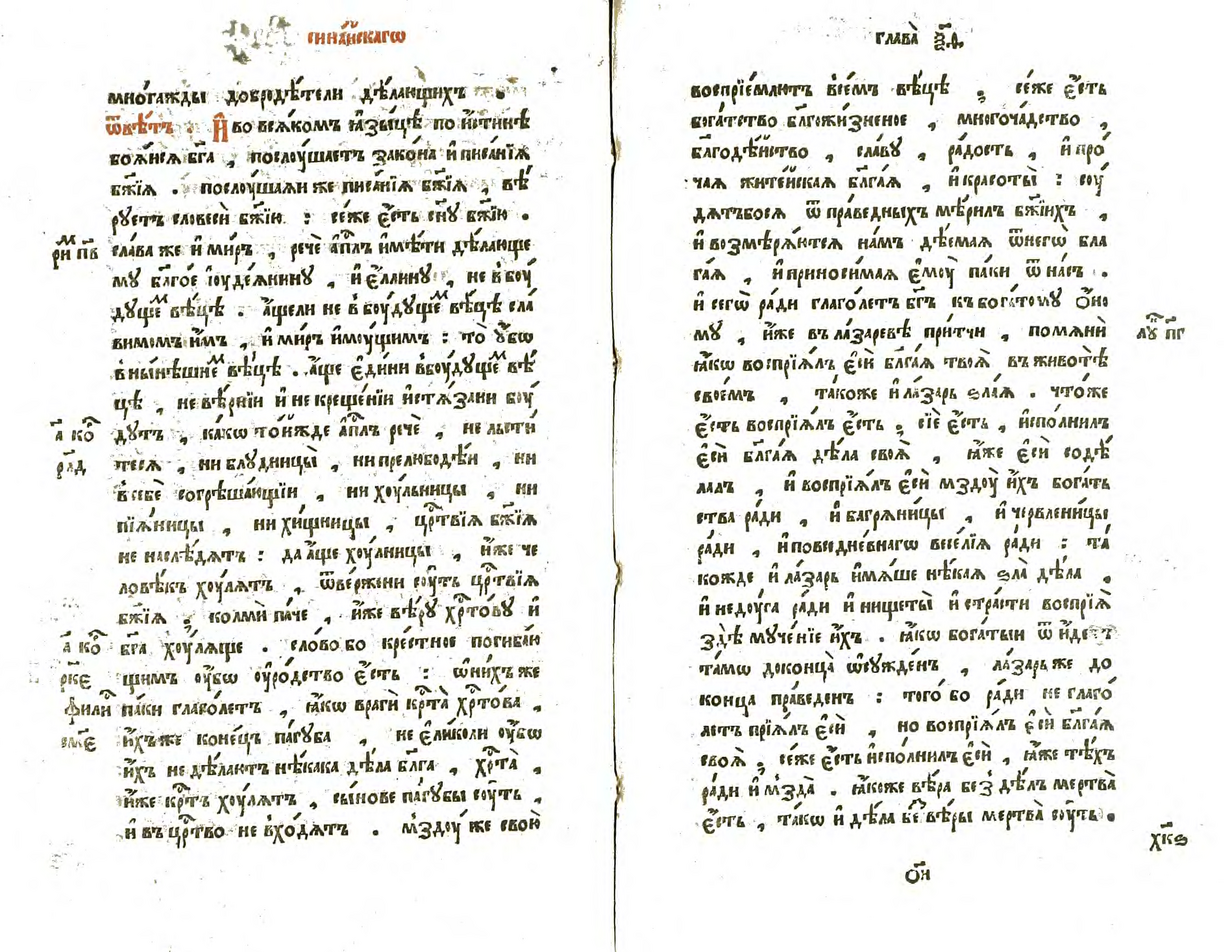 синаи́скагѡ
мно́гажды добродѣ́тели дѣ́лающихъ
ѿвѣ́тъ . И҆ во всѧ́комъ ꙗ҆зы́цѣ по и҆́стинѣ
боѧ́исѧ бг҃а , послꙋ́шаетъ зако́на и҆ писа́нїѧ
бж҃їѧ . послꙋ́шаѧи же писа́нїѧ бж҃їѧ , вѣ́
рꙋетъ словесѝ бж҃їю : се́же є҆́сть сн҃ꙋ бж҃їю .
ри пв
сла́ва же и҆ ми́ръ , речѐ а҆пⷭ҇лъ и҆мѣ́ти дѣ́лающе
мꙋ бл҃го́е і҆ꙋде́ѧнинꙋ , и҆ є҆́ллинꙋ , не в бꙋ́
дꙋщеⷨ вѣ́цѣ . а҆́щели не в бꙋ́дꙋщеⷨ вѣ́цѣ сла́
вимомъ и҆̀мъ , и҆ ми́ръ и҆мꙋ́щимъ : то̀ ᲂу҆́бѡ
в ны́нѣшнеⷨ вѣ́цѣ . а҆́ще є҆ди́ни вбꙋ́дꙋщеⷨ вѣ́
цѣ , невѣ́рнїи и҆ не креще́нїи и҆стѧ́зани бꙋ́
а҃ коⷬ
дꙋтъ , ка́кѡ то́йжде а҆пⷭ҇лъ речѐ , не льсти́
рл҃д
тесѧ , ни блꙋдницы̀ , ни прелюбодѣ́и , ни
в себѐ согрѣша́ющїи , ни хꙋ́льницы , ни
пїѧ́ницы , ни хи́щницы , црⷭ҇твїѧ бж҃їѧ
не наслѣ́дѧтъ : да а҆́ще хꙋ́лницы , и҆́же че
ловѣ́къ хꙋ́лѧтъ , ѿве́ржени сꙋ́ть црⷭ҇твїѧ
бж҃їѧ . колмѝ па́че , и҆́же вѣ́рꙋ хрⷭ҇то́вꙋ и҆
а҃ коⷬ
бг҃а хꙋ́лѧще . сло́во бо кре́стное погиба́ю
рк҃є
щимъ ᲂу҆́бѡ ᲂу҆ро́дство є҆́сть : ѡ҆ни́хъ же
фили
па́ки глаго́летъ , ꙗ҆́кѡ врагѝ крⷭ҇та̀ хрⷭ҇то́ва ,
см҃є
и҆́хъже коне́цъ па́гꙋба , не є҆ли́коли ᲂу҆́бѡ
и҆́хъ не дѣ́лаютъ нѣ́кака дѣ́ла бл҃га , хрⷭ҇та̀ ,
и҆́же крⷭ҇тъ хꙋ́лѧтъ , сы́нове па́гꙋбы сꙋ́ть ,
и҆ въ црⷭ҇тво не вхо́дѧтъ . мздꙋ́ же свою̀
глава̀ ѯ҃д
воспрїе́млютъ в се́мъ вѣ́цѣ , се́же є҆́сть
бога́тство бл҃гожи́зненое , многоча́дство ,
бл҃годѣ́йство , сла́вꙋ , ра́дость , и҆ про́
чаѧ жите́йскаѧ бл҃га́ѧ , и҆ красоты̀ : сꙋ́
дѧтъбосѧ ѿ пра́ведныхъ мѣ́рилъ бж҃їихъ ,
и҆ возмѣрѧ́ютсѧ на́мъ дѣ́емаѧ ѿнегѡ̀ бла
га́ѧ , и҆ приноси́маѧ є҆мꙋ̀ па́ки ѿ на́съ .
и҆ сегѡ̀ ра́ди глаго́летъ бг҃ъ къ бога́томꙋ ѻ҆́но
мꙋ , и҆́же въ ла́заревѣ при́тчи , помѧнѝ
лꙋⷦ҇ пг
ꙗ҆́кѡ воспрїѧ́лъ є҆сѝ бл҃га́ѧ твоѧ̀ въ животѣ̀
своє́мъ , та́коже и҆ ла́зарь ѕла́ѧ . что́же
є҆́сть воспрїѧ́лъ є҆́сть , сїѐ є҆́сть , и҆спо́лнилъ
є҆сѝ бл҃га́ѧ дѣ́ла своѧ̀ , ꙗ҆́же є҆сѝ содѣ́
лалъ , и҆ воспрїѧ́лъ є҆сѝ мздꙋ̀ и҆́хъ бога́ть
ства ра́ди , и҆ багрѧ́ницы , и҆ червлени́цы
ра́ди , и҆ повсѧдне́внагѡ весе́лїѧ ра́ди : та́
кожде и҆ ла́зарь и҆мѧ́ше нѣ́каѧ ѕла̀ дѣ́ла ,
и҆ недꙋ́га ра́ди и҆ нищеты̀ и҆ стра́сти воспрїѧ̀
здѣ̀ мꙋче́нїе и҆́хъ . ꙗ҆́кѡ бога́тыи ѿ и҆́детъ
та́мѡ доконца̀ ѡ҆сꙋжде́нъ , ла́зарь же до
конца̀ пра́веденъ : того̀ бо ра́ди не глаго́
летъ прїѧ́лъ є҆сѝ , но воспрїѧ́лъ є҆сѝ бл҃га́ѧ
своѧ̀ , се́же є҆́сть и҆спо́лнилъ є҆сѝ , ꙗ҆́же тѣ́хъ
ра́ди и҆ мзда̀ . ꙗ҆́коже вѣ́ра без дѣ́лъ мертва̀
є҆́сть , та́кѡ и҆ дѣ́ла беⷥ вѣ́ры мертва̀ сꙋ́ть .
хк҃ѕ
ѻ҃и